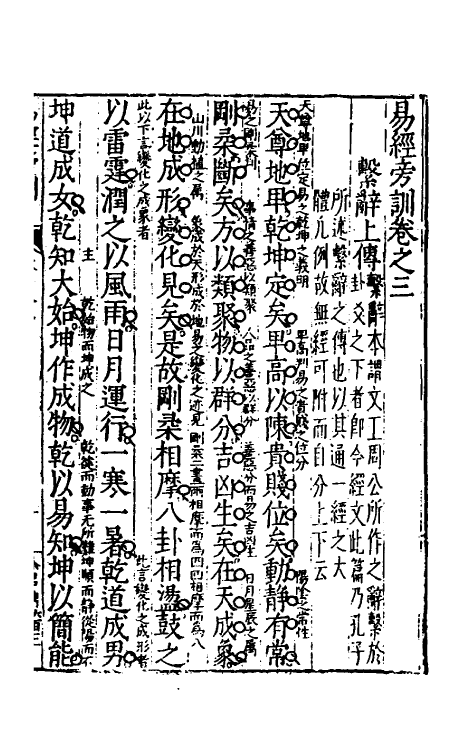 易經旁訓卷之三
繫辭上傳
繫辭本謂文王周公所作之辭繫於
卦爻之下者即今經文此篇乃孔子
所述繫辭之傳也以其通一經之大
體凡例故無經可附而自分上下云
天尊地卑位定易之乾坤之義明 卑高判易之貴賤之位分 陽陰之常性
天尊地卑乾坤定矣卑高以陳貴賤位矣動靜有常
易之剛柔判 事情之善惡以類聚 人品之善惡以群分 善惡分而易之吉凶生 日月星辰之屬
剛柔斷矣方以類聚物以群分吉凶生矣在天成象
山川動植之屬 象成於天形成於地易之變化之迹見 剛柔二畫兩相摩而為四四相摩而為八
在地成形變化見矣是故剛柔相摩八卦相盪鼓之
此以下言變化之成象者 此言變化之成形者
以雷霆潤之以風雨日月運行一寒一暑乾道成男
主 乾始物而坤成之 乾健而動事无所難坤順而靜從陽而不
坤道成女乾知大始坤作成物乾以易知坤以簡能